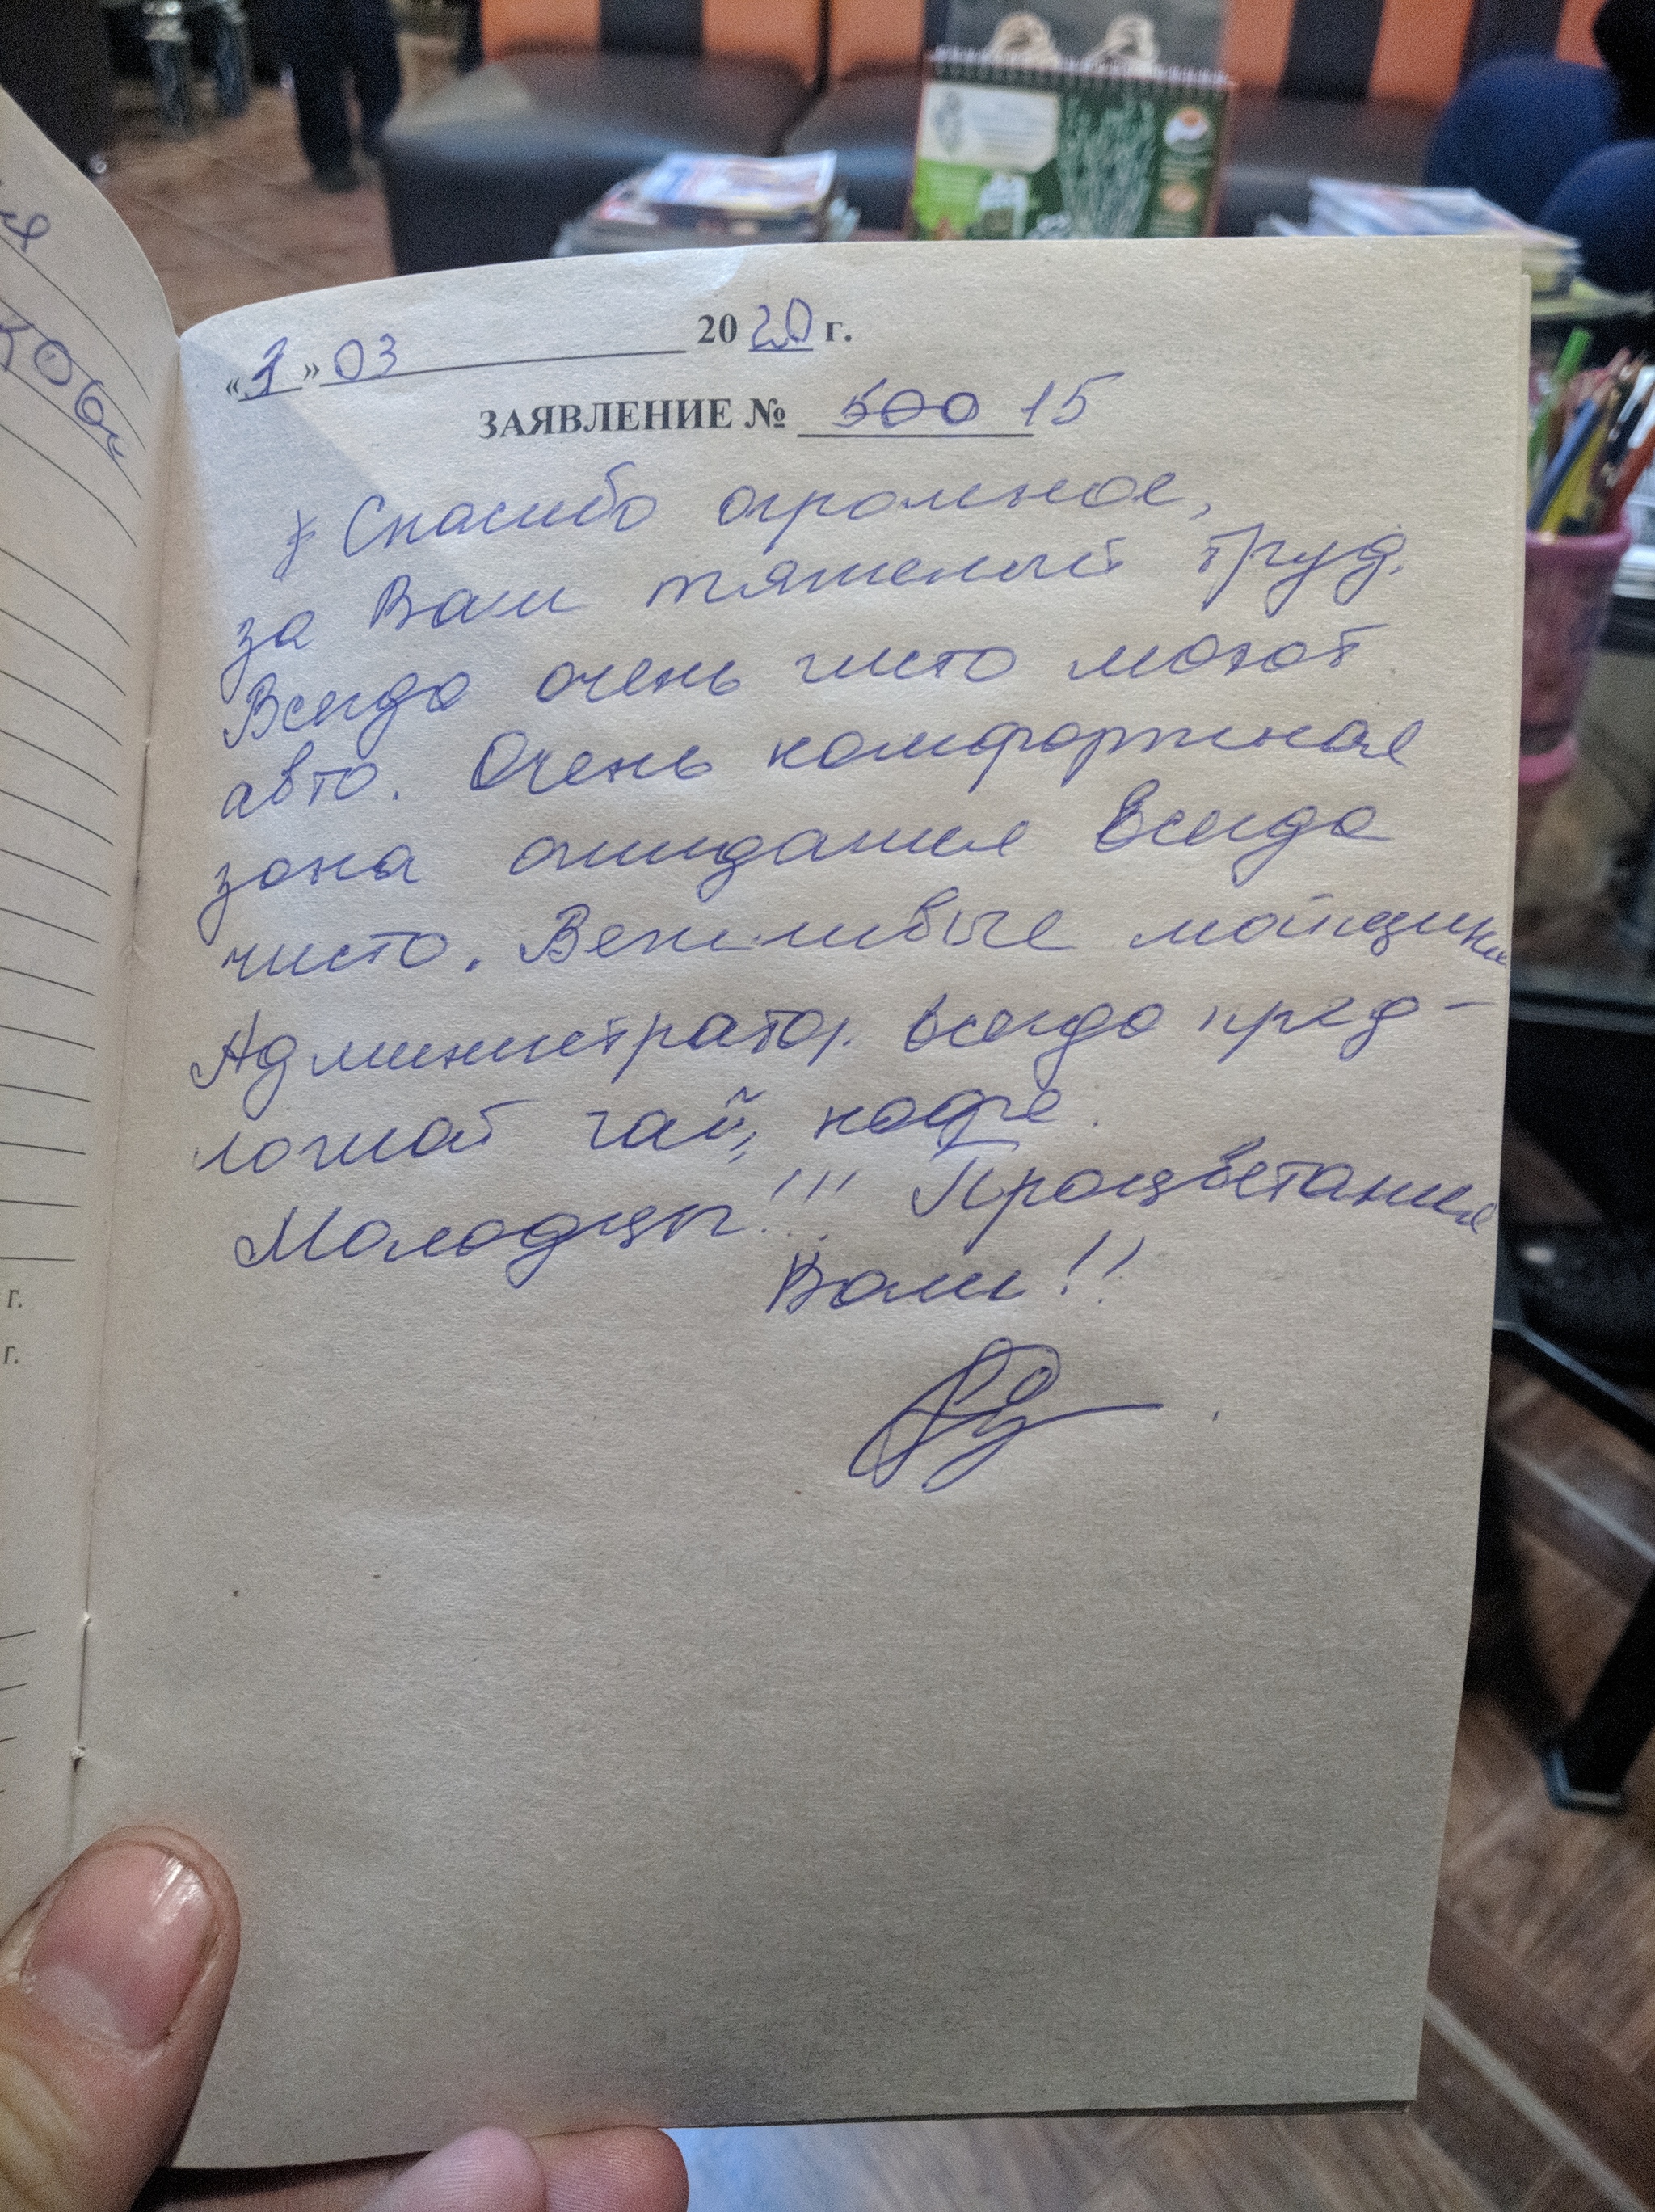 «1» 03 2020 г.
ЗАЯВЛЕНИЕ № 500 15
Спасибо огромное,
за Ваш тяжелый труд.
Всегда очень чисто моют
авто. Очень комфортная
зона ожидания всегда
чисто. Вежливые мойщики
Администратор всегда пред-
ложат чай, кофе.
Молодцы!!! Процветания
Вам!!
г.
г.